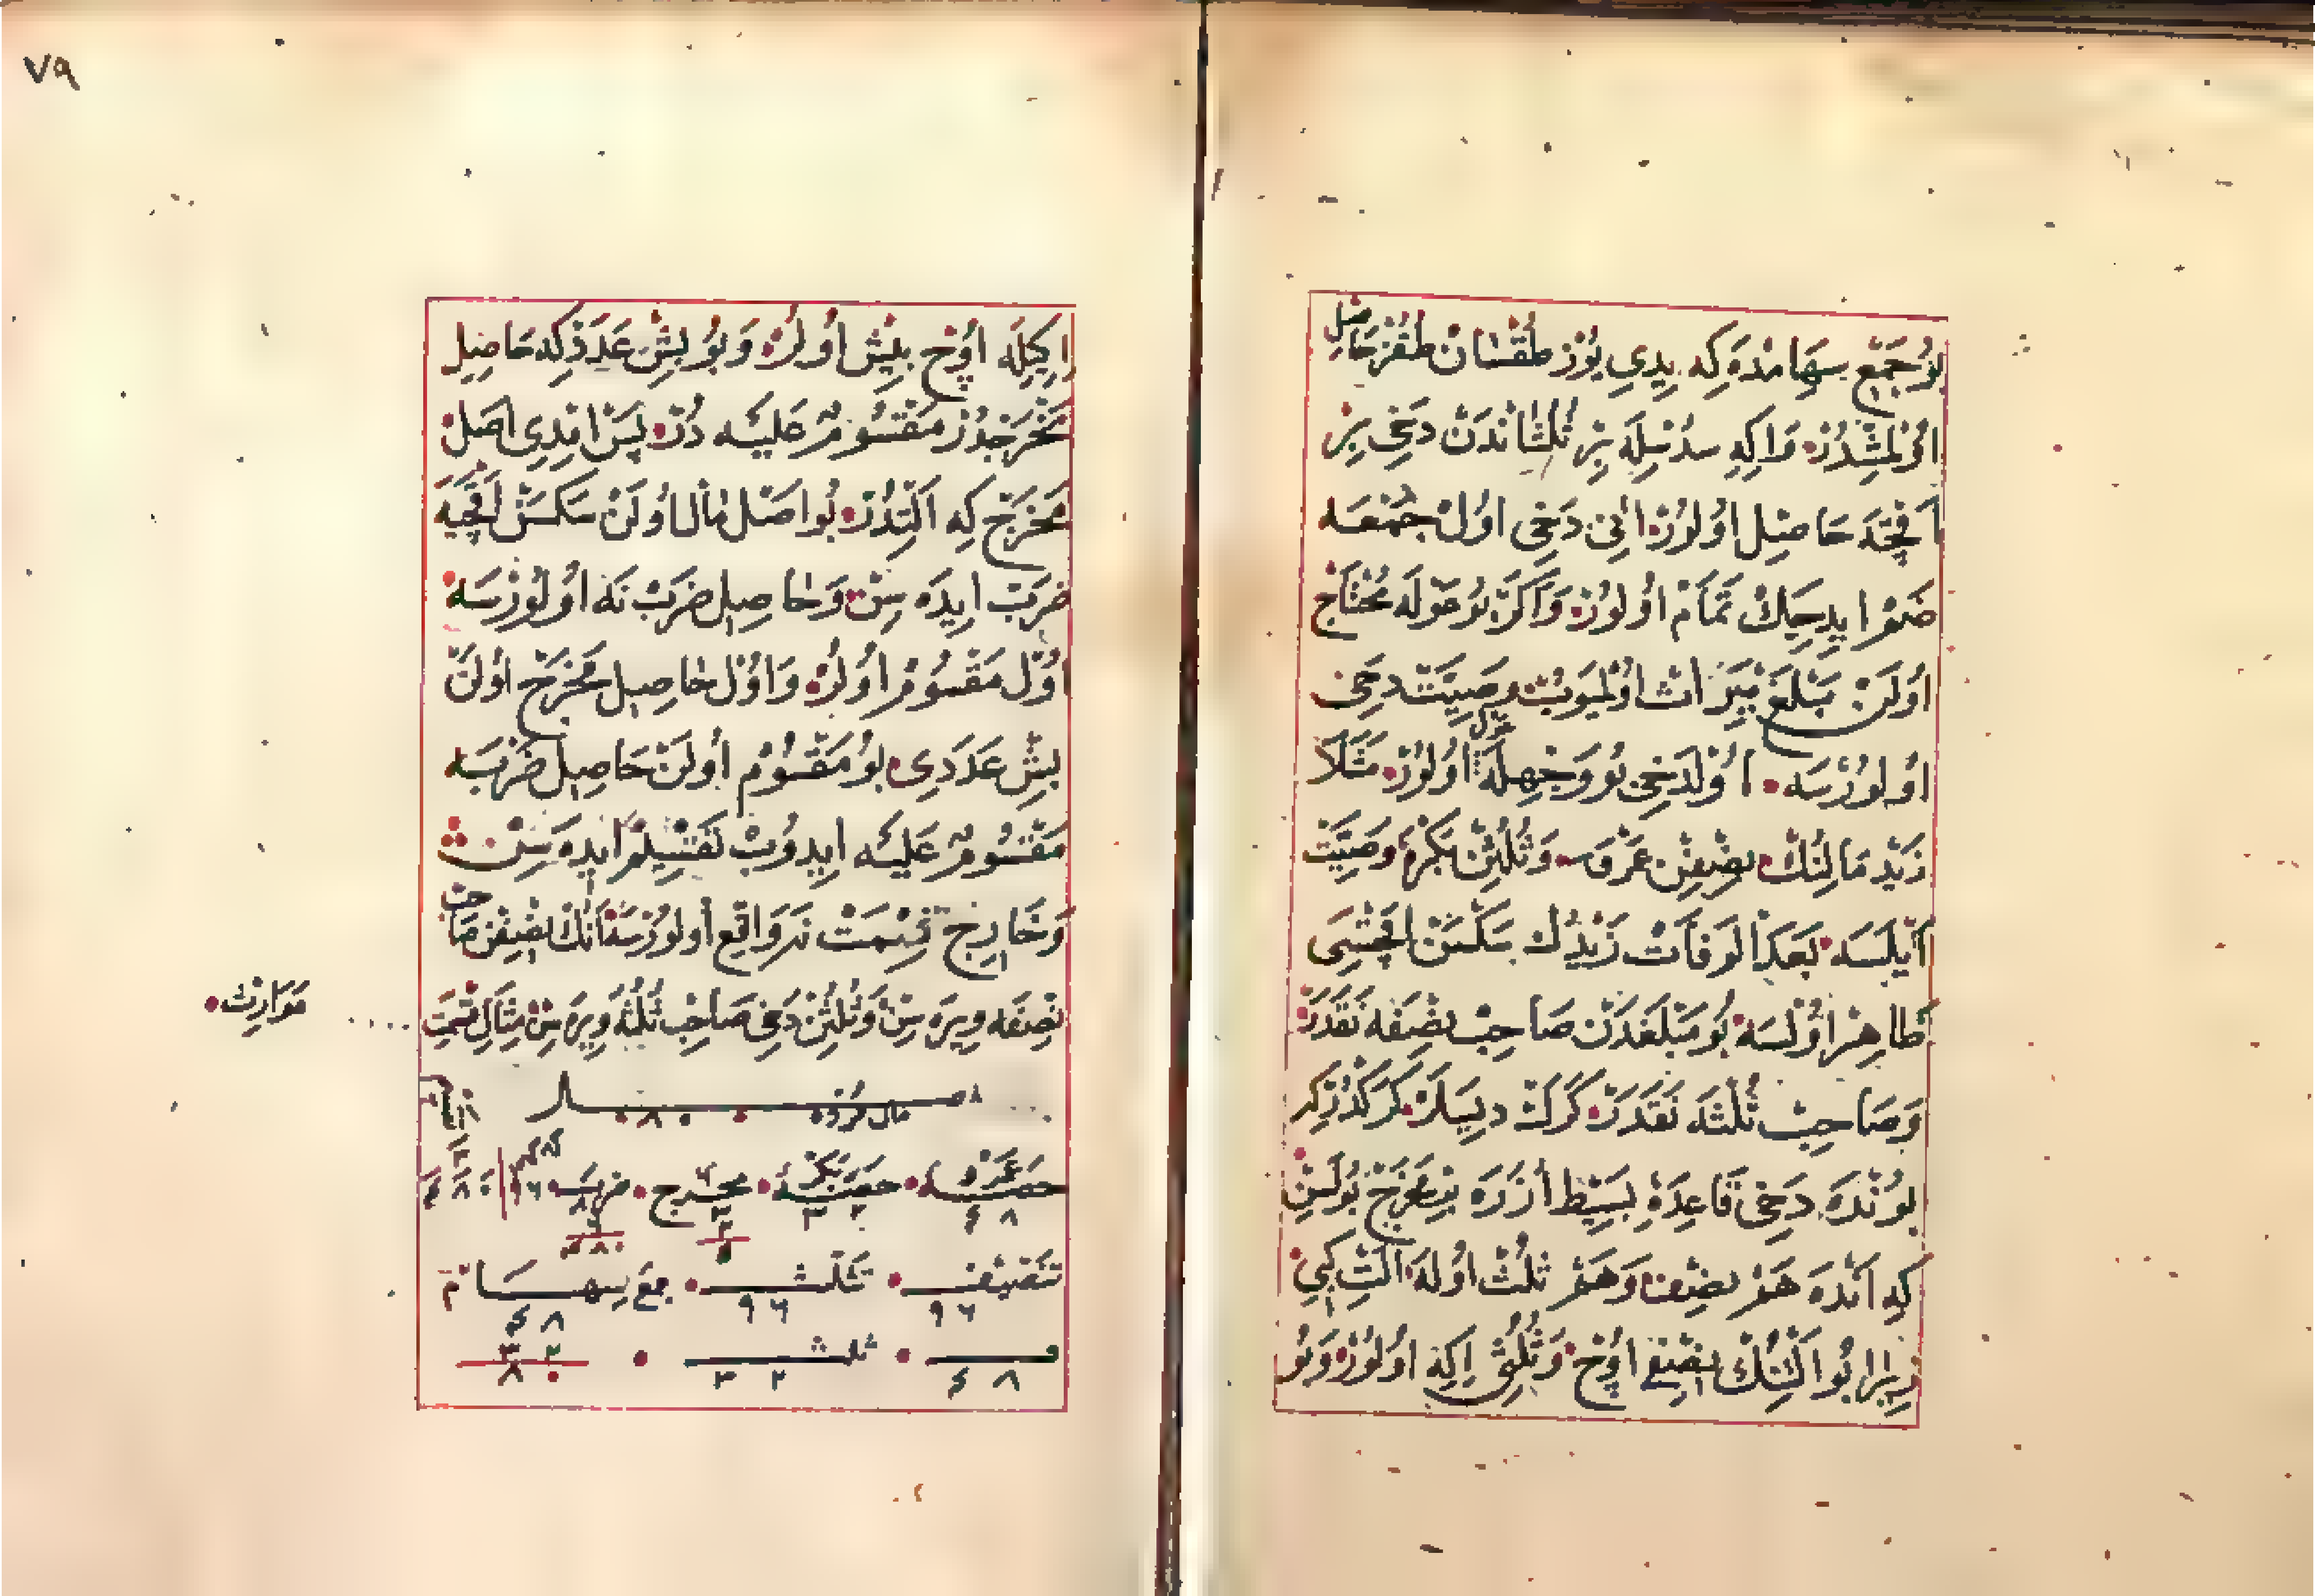 بُو جَمْعِ سِهَامْدَه كِه يِدِي يُوزْ طُقْسَانْ طُقُزْ حَاصِلْ
اُولْمِشْدُرْ وَاِكِه سُدُسِلَه بِرْ ثُلْثَانْدَنْ دَخِى بِرْ
اَقْچَه حَاصِلْ اُولُورْ اٰنِى دَخِى اُولْ جَمْعَه
ضَمْ اِيدِيجَكْ تَمَامْ اُولُورْ وَاَكَرْ بُو مَقُولَه مُحْتَاجْ
اُولَنْ مَبْلَغْ مِيرَاثْ اُولْمَيُوبْ وَصِيَّتْ دَخِى
اُولُورْسَه اُولْدَخِى بُو وَجْهِلَه عَمَلْ اُولُورْ مَثَلَا
زَيْد مَالِنُكْ نِصْفِنْ عَمْرَه وَثُلْثِنْ بَكْرَه وَصِيَّتْ
اَيْلَسَه بَعْدَ الْوَفَاتْ زَيْدُكْ سَكْسَنْ اَقْچَسِى
ظَاهِرْ اُولْسَه بُو مَبْلَغْدَنْ صَاحِبْ نِصْفَه نَقَدَرْ
وَصَاحِبْ ثُلْثَه نَقَدَرْ كَرَكْ دِيسَلَرْ كَرَكْدُرْ كِه
بُونْدَه دَخِى قَاعِدَۀِ بَسِيطْ اُزَرَه بِرْ مَخْرَجْ بُولَسِنْ
كِه اَنْدَه هَمْ نِصْفْ وَهَمْ ثُلُثْ اُولَه اَلْتِى كِبِى
زِيرَا بُو اَلْتِنُكْ نِصْفِى اُوچْ وَثُلْثِى اِكِه اُولُورْ وَبُو
اِكِيلَه اُوچْ بِيشْ اُولُرْ وَبُو بِشْ عَدَدْ كِه حَاصِلِ
مَخْرَجْدُرْ مَقْسُومٌ عَلَيْه دُرْ پَسْ اِمْدِى اَصْلْ
مَخْرَجْ كِه اَلْتِدُرْ بُو اَصْلْ مَالْ اُولَنْ سَكْسَنْ اَقْچَيَه
ضَرَبْ اِيدَه سِنْ وَحَاصِلِ ضَرَبْ نَه اُولُورْسَه
اُولْ مَقْسُومْ اُولُرْ وَاُولْ حَاصِلِ مَخْرَجْ اُولَنْ
بِشْ عَدَدِى بُو مَقْسُومْ اُولَنْ حَاصِلِ ضَرْبَه
مَقْسُومٌ عَلَيْه اِيدُوبْ تَقْسِيمْ اِيدَه سِنْ
وَخَارِجِ قِسْمَتْ نَه وَاقِعْ اُولُورْسَه اَنُكْ نِصْفِنْ صَاحِبْ
نِصْفَه وِيرَه سِنْ وَثُلْثِنْ دَخِى صَاحِبْ ثُلْثَه وِيرَه سِنْ مِثَالِ قِسْمَتِ
مَوَارِيثْ
اصل مال
٨٠
حصۀ عمرو حصۀ بكر مخرج ضرب
٤٨ ٣٢
٤٨٠
تنصيف تثليث جمع سهام
٩٦ ٩٦ ٤٨
ثلث ٣٢
٤٨ ٣٢ ٨٠
٧٩